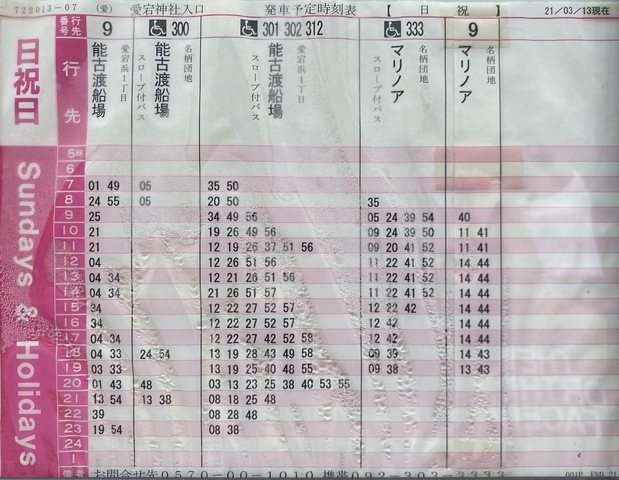 722013-07 (愛) 愛宕神社入口 発車予定時刻表 【日 祝】 21/03/13現在
行先番号 9 300 301 302 312 333 9
日祝日 Sundays & Holidays
行先
愛宕浜1丁目 能古渡船場
名柄団地 能古渡船場 スロープ付バス
愛宕浜1丁目 能古渡船場 スロープ付バス
名柄団地 マリノア スロープ付バス
名柄団地 マリノア
5時
6
7 01 49 05 35 50
8 24 55 05 20 50 35
9 25 34 49 56 05 24 39 54 40
10 21 19 26 49 56 09 24 39 50 11 41
11 21 12 19 26 37 51 56 09 20 41 52 11 41
12 04 12 26 51 56 11 22 41 52 14 44
13 04 34 12 21 26 51 56 11 22 41 52 14 44
14 04 34 21 26 51 57 11 22 41 52 14 44
15 34 12 22 27 52 57 12 22 42 14 44
16 34 12 22 27 52 57 12 42 14 44
17 04 34 12 22 27 42 52 59 12 42 14 44
18 04 33 24 54 13 19 28 43 49 58 09 39 14 43
19 03 33 13 19 25 40 48 55 09 38 13 43
20 01 43 48 03 13 23 25 38 40 53 55
21 13 54 13 38 08 18 25 48
22 39 08 28 48
23 19 54 08 38
24
1
備考 お問合せ先0570-00-1010 携帯092-303-3333 001P END 21